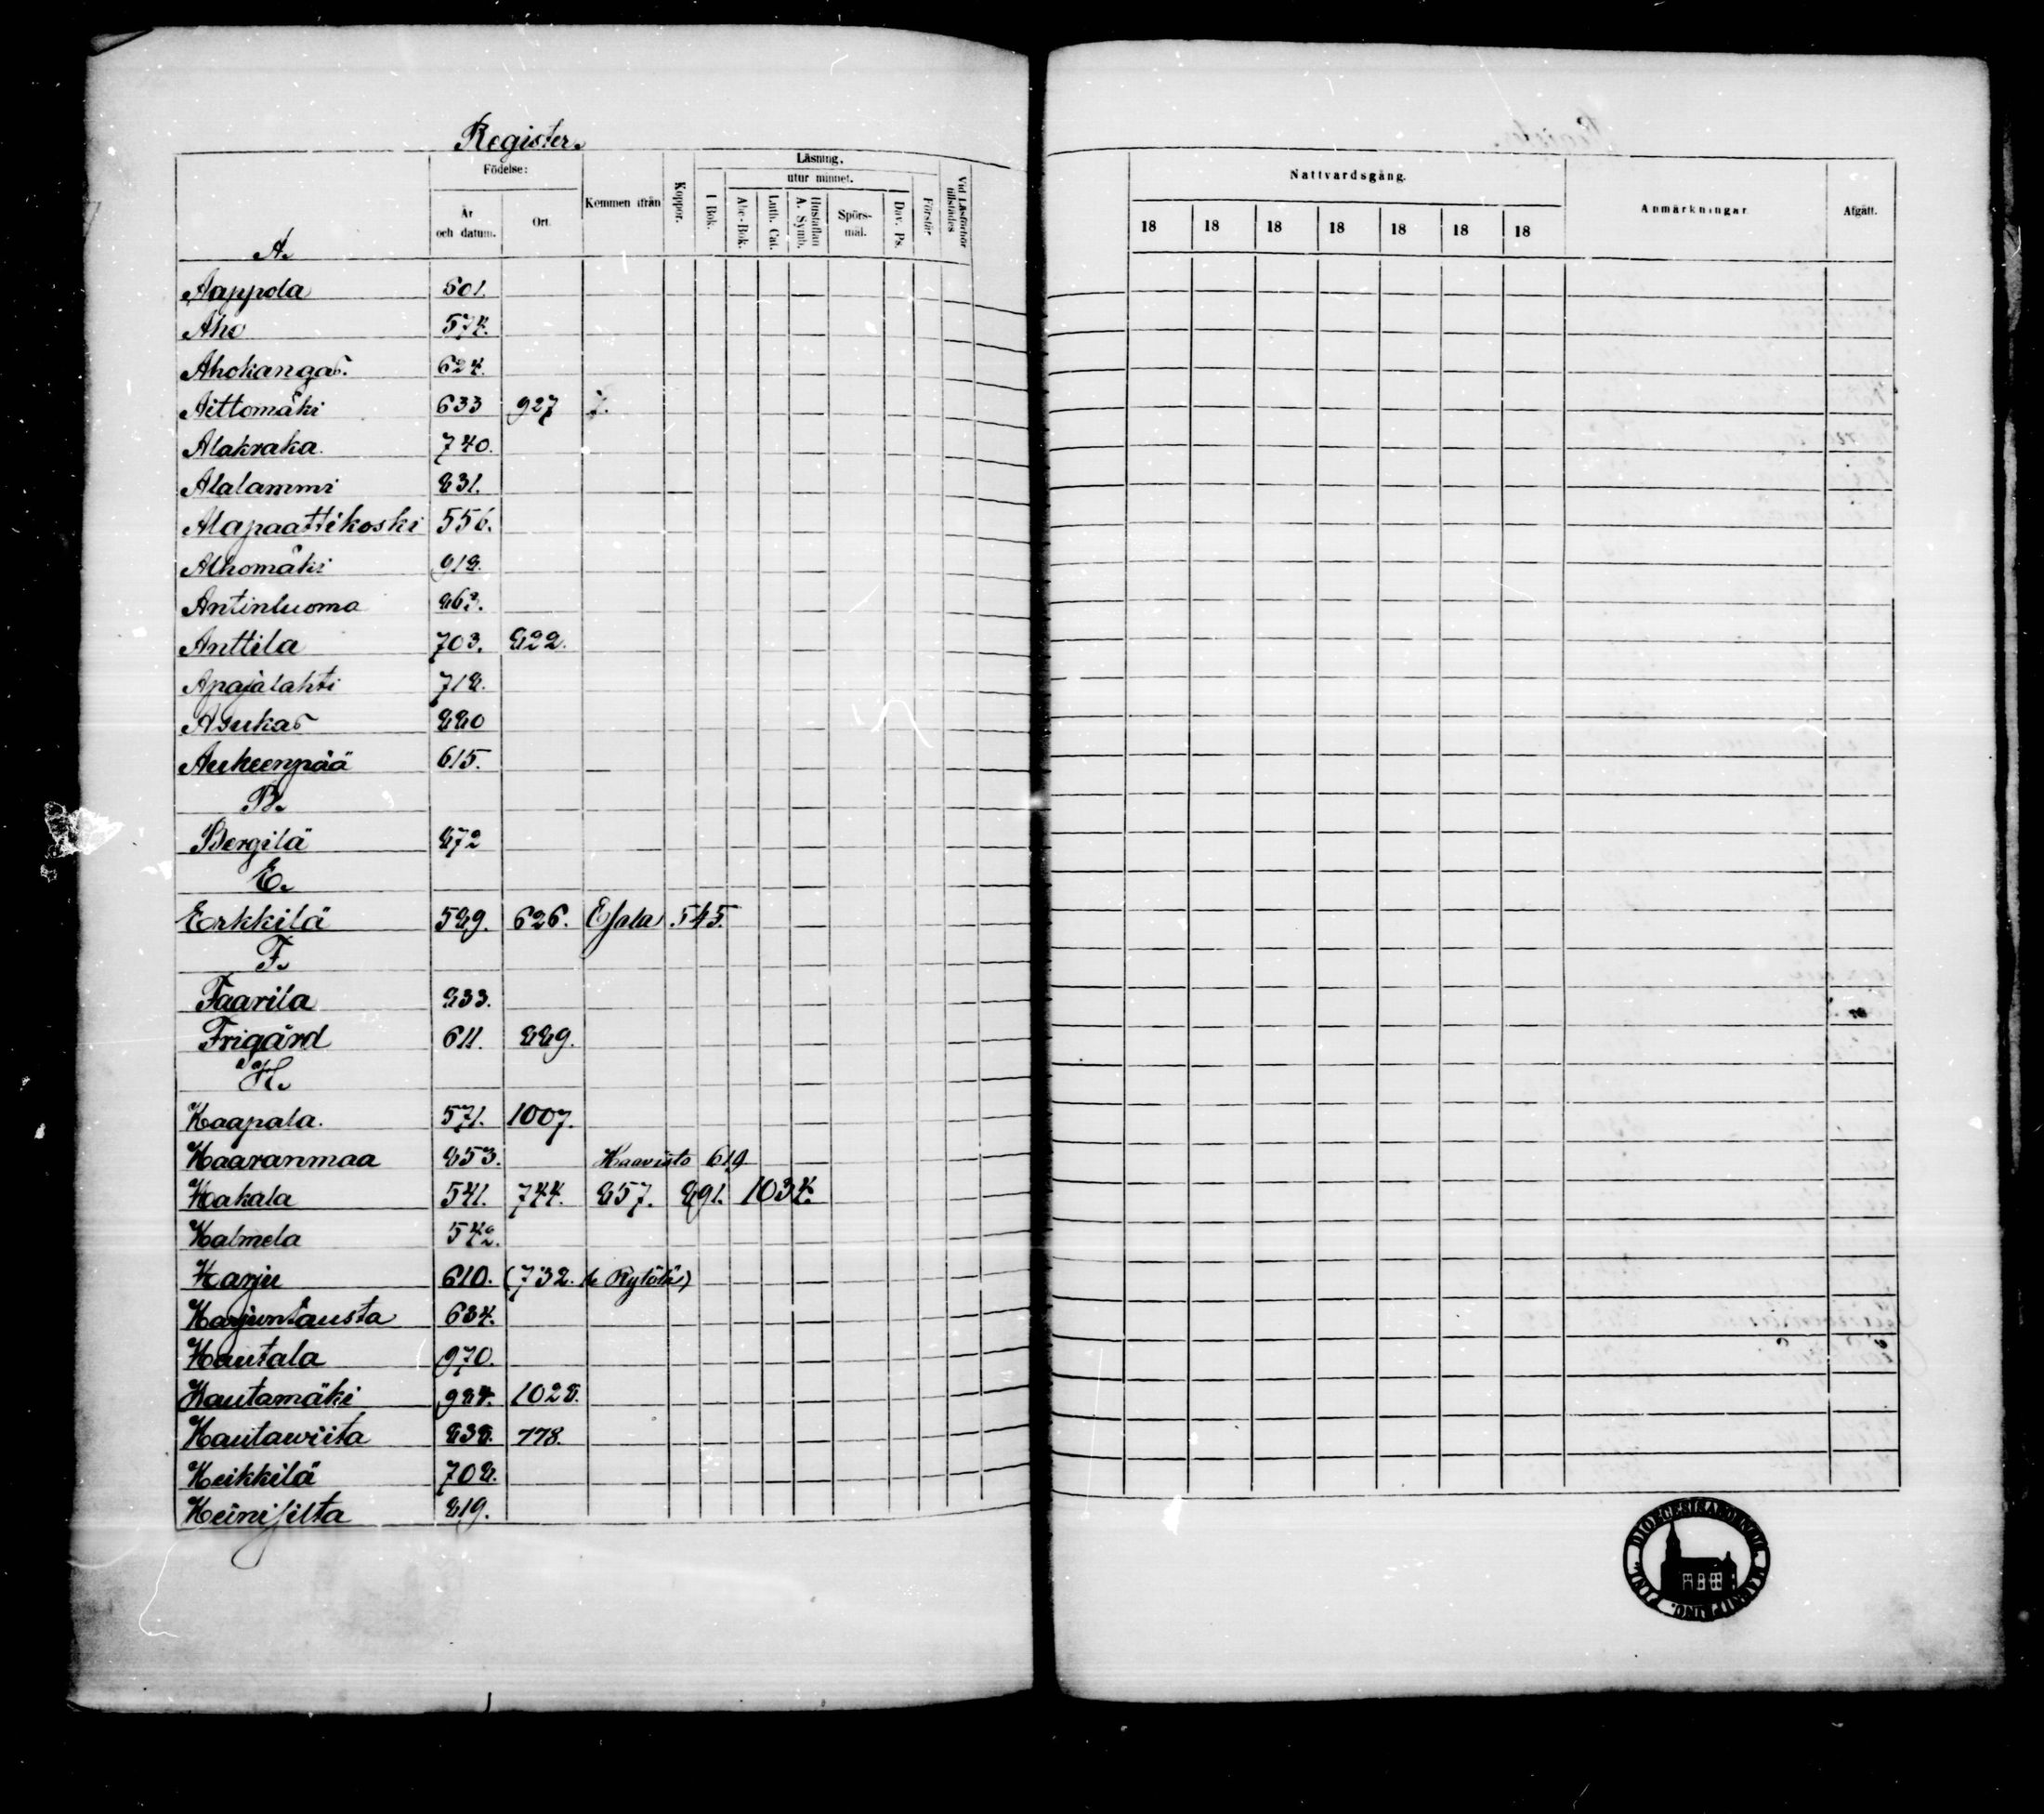 Register.
Födelse:
År och datum.
Ort.
Kommen ifrån
Koppor.
Läsning.
utur minnet.
I Bok.
Abc-Bok.
Luth. Cat.
Hustaflan A. Symb.
Spörsmål.
Dav. Ps.
Förstår
Vid Läsförhör tillstädes
A.
Aappola 801.
Aho 574.
Ahokangas. 624.
Aittomäki 633 927
Alakraka. 740.
Alalammi 831.
Alapaattikoski 556.
Alhomäki 918.
Antinluoma 863.
Anttila 703. 822.
Apajalahti 718.
Asukas 880
Auheenpää 615.
B.
Bergilä 872
E.
Erkkilä 589. 626. Esala 545.
F.
Faarila 833.
Frigård 611. 889.
H.
Haapala. 571. 1007.
Haaranmaa 853. Haavisto 619
Hakala 541. 744. 857. 891. 1034.
Halmela 542.
Harju 610. (732. Rytölä)
Harjuntausta 634.
Hautala 970.
Hautamäki 984. 1028.
Hautawiita 838. 778.
Heikkilä 708.
Heinisilta 819.
Nattvardsgång.
18 18 18 18 18 18 18
Anmärkningar
Afgått.